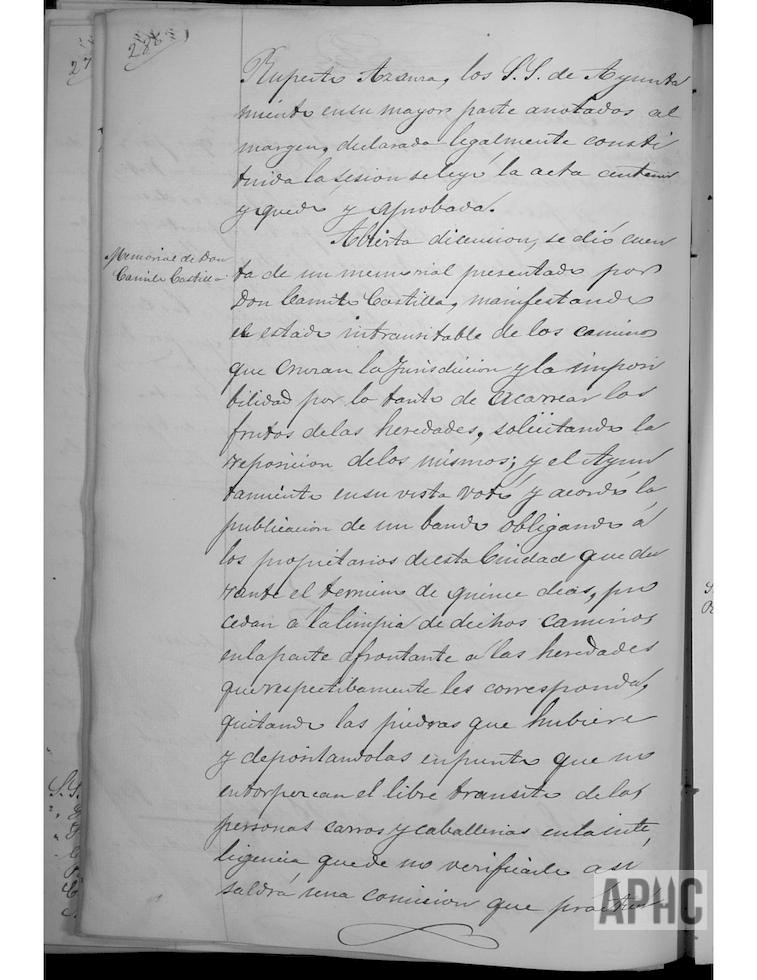 288
27
Ruperto Azcura, los S.S. de Ayunta
miento en su mayor parte anotados al
margen, declarada legalmente consti
tuida la sesion se leyó la acta
y quedo y aprobada.
Memorial de Don
Camilo Castilla
Abierta discusion, se dió cuen
ta de un memorial presentado por
Don Camilo Castilla, manifestando
el estado intransitable de los caminos
que cruzan la Jurisdiccion y la imposi
bilidad por lo tanto de acarrear los
frutos de las heredades, solicitando la
reposicion de los mismos; y el Ayun
tamiento en su vista votó y acordó la
publicacion de un bando obligando á
los propietarios de esta Ciudad que du
rante el termino de quince dias, pro
cedan á la limpia de dichos caminos
en la parte afrontante á las heredades
que respectibamente les corresponda,
quitando las piedras que hubiere
y depositandolas en punto que no
entorpezcan el libre transito de las
personas carros y caballerias en la inte
ligencia, que de no verificarlo asi
saldrá una comision que
APHC